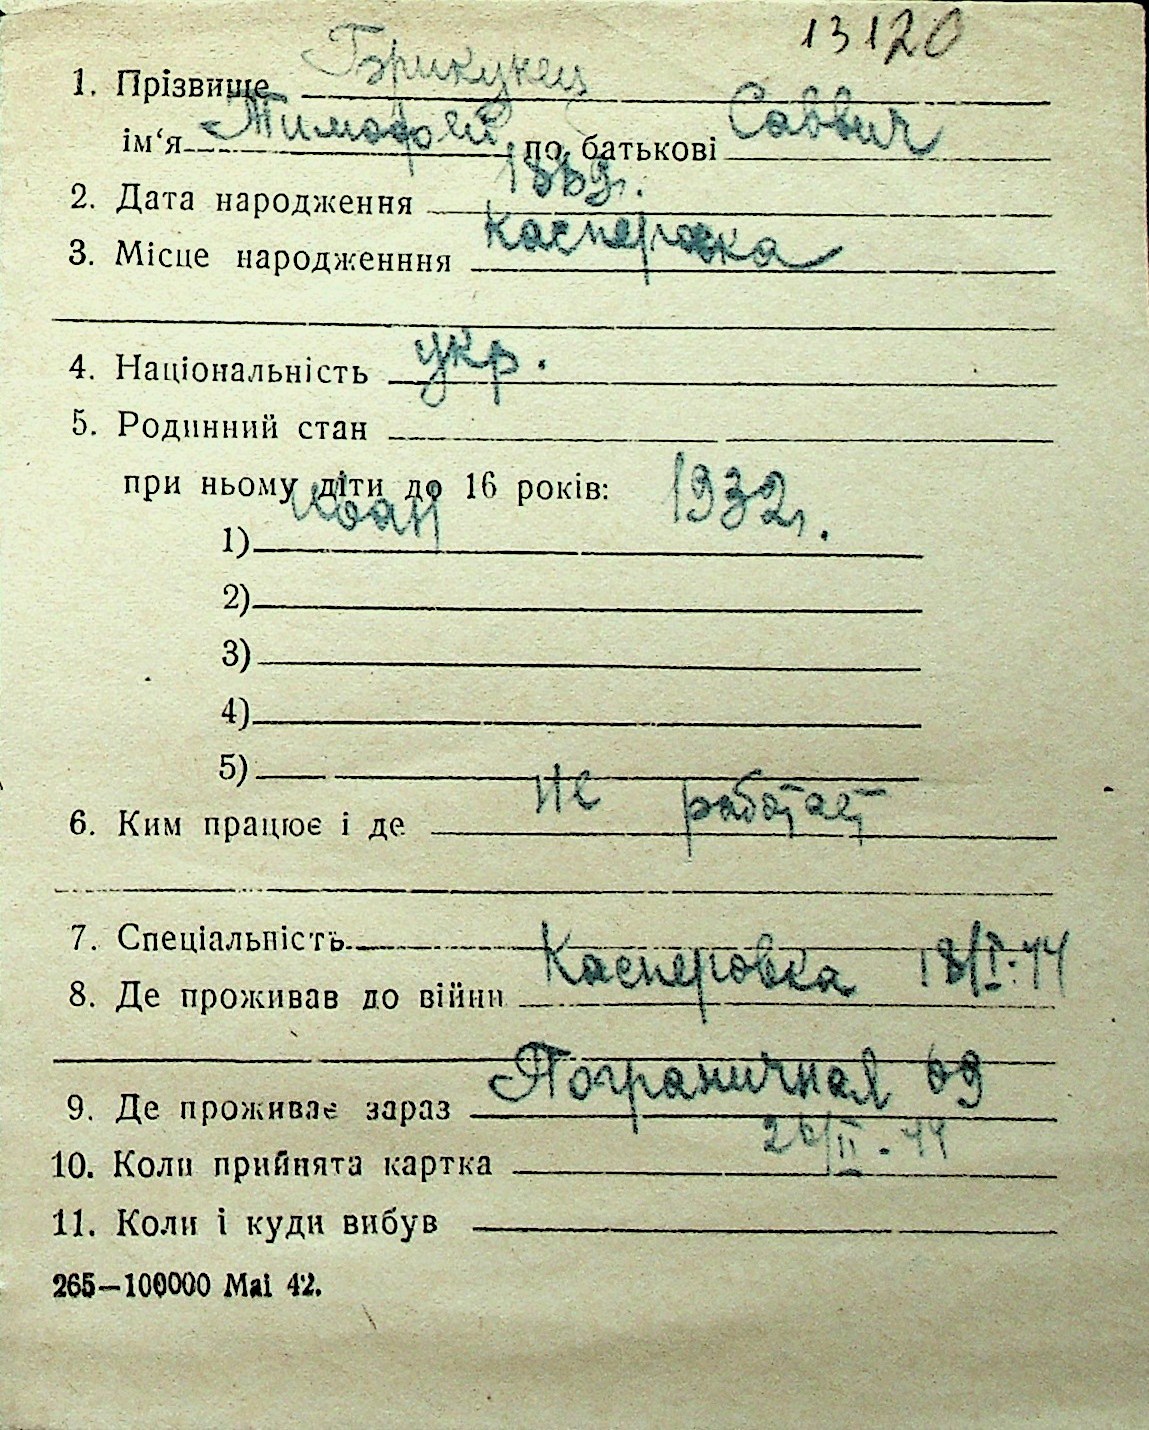 13120
1. Прізвище Брикунец
ім‘я Тимофей по батькові Саввич
2. Дата народження 1889г.
3. Місце народженння Касперовка
4. Національність укр.
5. Родинний стан
при ньому діти до 16 років:
1) Иван 1932г.
2)
3)
4)
5)
6. Ким працює і де Не работает
7. Спеціальність
8. Де проживав до війни Касперовка 18/I-44
9. Де проживає зараз Пограничная 69
10. Коли прийнята картка 26/II-44
11. Коли і куди вибув
265—100000 Mai 42.